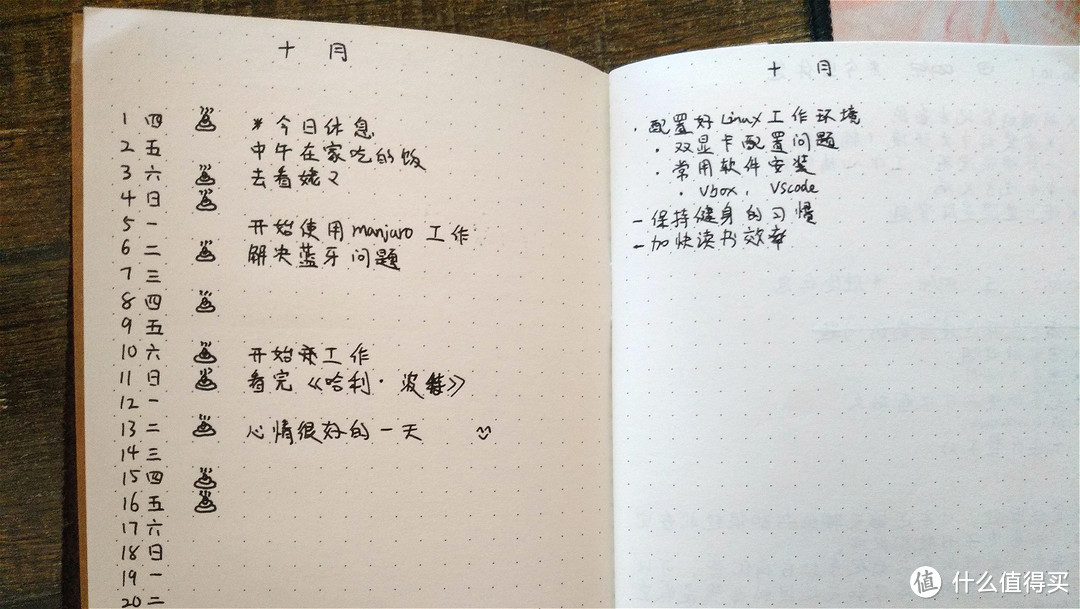 十月
1 四 *今日休息
2 五 中午在家吃的饭
3 六 去看姥々
4 日
5 一 开始使用manjaro 工作
6 二 解决蓝牙问题
7 三
8 四
9 五
10 六 开始乘工作
11 日 看完《哈利·波特》
12 一
13 二 心情很好的一天
14 三
15 四
16 五
17 六
18 日
19 一
20 二
十月
· 配置好Linux工作环境
· 双显卡配置问题
· 常用软件安装
· Vbox, Vscode
- 保持健身的习惯
- 加快读书效率
值 什么值得买